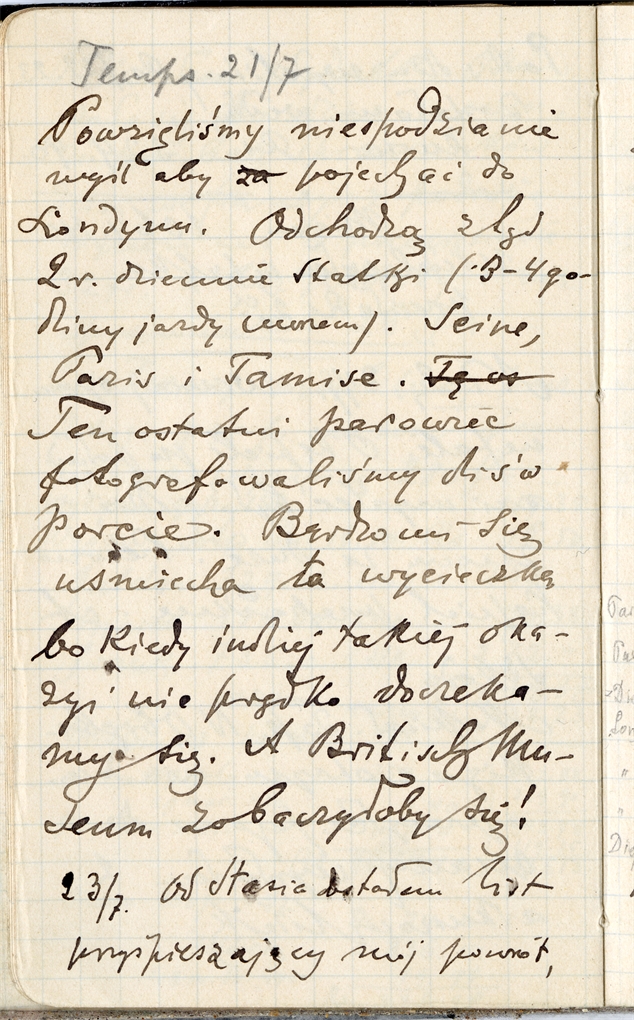 Temps. 21/7
Powzięliśmy niespodzianie
myśl aby za pojechać do
Londynu. Odchodzą ztąd
2 r. dziennie Statki (3-4 go-
dziny jazdy morzem). Seine,
Paris i Tamise. Tę os
Ten ostatni parowiec
fotografowaliśmy dziś w
porcie. Bardzo mi się
uśmiecha ta wycieczka
bo kiedy indziej takiej oka-
zyi nie prędko doczeka-
my się. A British Mu-
seum zobaczyłoby się!
23/7. Od Stasia dostałem list
przyśpieszający mój powrót,